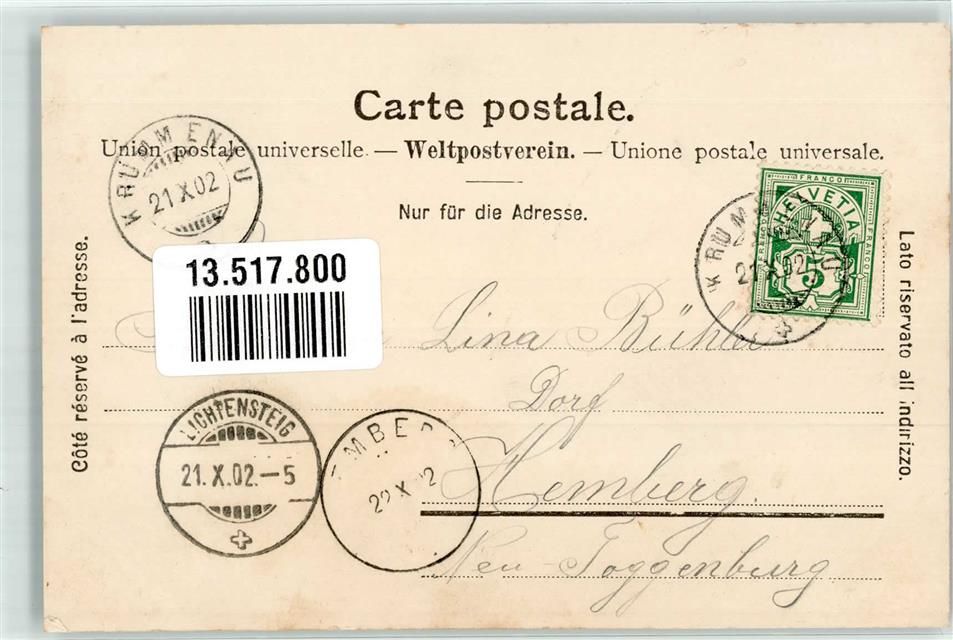 Carte postale.
Union postale universelle. — Weltpostverein. — Unione postale universale.
Nur für die Adresse.
Côté réservé à l'adresse.
Lato riservato all' indirizzo.
KRUMMENAU
21 X 02
FRANCO
HELVETIA
FRANCO
5
KRUMMENAU
21 X 02
13.517.800
Lina Bühler
Dorf
Hemberg.
Neu-Toggenburg
LICHTENSTEIG
21. X. 02. – 5
EMBER
22 X 02